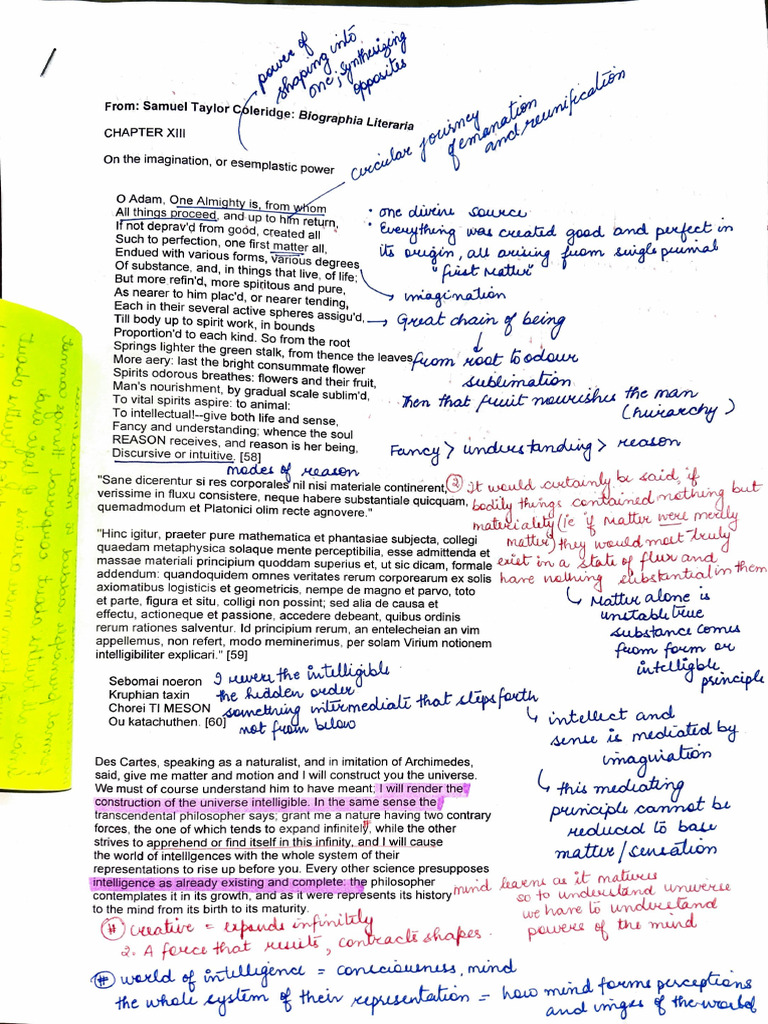 power of
shaping into
one; synthesizing
opposites
From: Samuel Taylor Coleridge: Biographia Literaria
CHAPTER XIII
On the imagination, or esemplastic power
circular journey
of emanation
and reunification
O Adam, One Almighty is, from whom
All things proceed, and up to him return,
If not deprav'd from good, created all
Such to perfection, one first matter all,
Endued with various forms, various degrees
Of substance, and, in things that live, of life;
But more refin'd, more spiritous and pure,
As nearer to him plac'd, or nearer tending,
Each in their several active spheres assigu'd,
Till body up to spirit work, in bounds
Proportion'd to each kind. So from the root
Springs lighter the green stalk, from thence the leaves
More aery: last the bright consummate flower
Spirits odorous breathes: flowers and their fruit,
Man's nourishment, by gradual scale sublim'd,
To vital spirits aspire: to animal:
To intellectual!--give both life and sense,
Fancy and understanding; whence the soul
REASON receives, and reason is her being,
Discursive or intuitive. [58]
• one divine source
• Everything was created good and perfect in
its origin, all arising from single primal
"first matter"
imagination
Great chain of being
from root to odour
sublimation
Then that fruit nourishes the man
(hierarchy)
Fancy > understanding > reason
modes of reason
"Sane dicerentur si res corporales nil nisi materiale continerent,
verissime in fluxu consistere, neque habere substantiale quicquam,
quemadmodum et Platonici olim recte agnovere."
"Hinc igitur, praeter pure mathematica et phantasiae subjecta, collegi
quaedam metaphysica solaque mente perceptibilia, esse admittenda et
massae materiali principium quoddam superius et, ut sic dicam, formale
addendum: quandoquidem omnes veritates rerum corporearum ex solis
axiomatibus logisticis et geometricis, nempe de magno et parvo, toto
et parte, figura et situ, colligi non possint; sed alia de causa et
effectu, actioneque et passione, accedere debeant, quibus ordinis
rerum rationes salventur. Id principium rerum, an entelecheian an vim
appellemus, non refert, modo meminerimus, per solam Virium notionem
intelligibiliter explicari." [59]
② It would certainly be said, if
bodily things contained nothing but
materiality (ie if matter were merely
matter) they would most truly
exist in a state of flux and
have nothing substantial in them
Matter alone is
unstable true
substance comes
from form or
intelligble
principle
Sebomai noeron
Kruphian taxin
Chorei TI MESON
Ou katachuthen. [60]
I revere the intelligible
the hidden order
something intermediate that steps forth
not from below
intellect and
sense is mediated by
imaguiation
this mediating
principle cannot be
reduced to base
matter/sensation
Des Cartes, speaking as a naturalist, and in imitation of Archimedes,
said, give me matter and motion and I will construct you the universe.
We must of course understand him to have meant; I will render the
construction of the universe intelligible. In the same sense the
transcendental philosopher says; grant me a nature having two contrary
forces, the one of which tends to expand infinitely, while the other
strives to apprehend or find itself in this infinity, and I will cause
the world of intelligences with the whole system of their
representations to rise up before you. Every other science presupposes
intelligence as already existing and complete: the philosopher
contemplates it in its growth, and as it were represents its history
to the mind from its birth to its maturity.
mind learns as it matures
so to understand universe
we have to understand
powers of the mind
# creative = expands infinitely
2. A force that resists, contracts shapes.
# world of intelligence = consciousness, mind
the whole system of their representation = how mind forms perceptions
and imges of the world